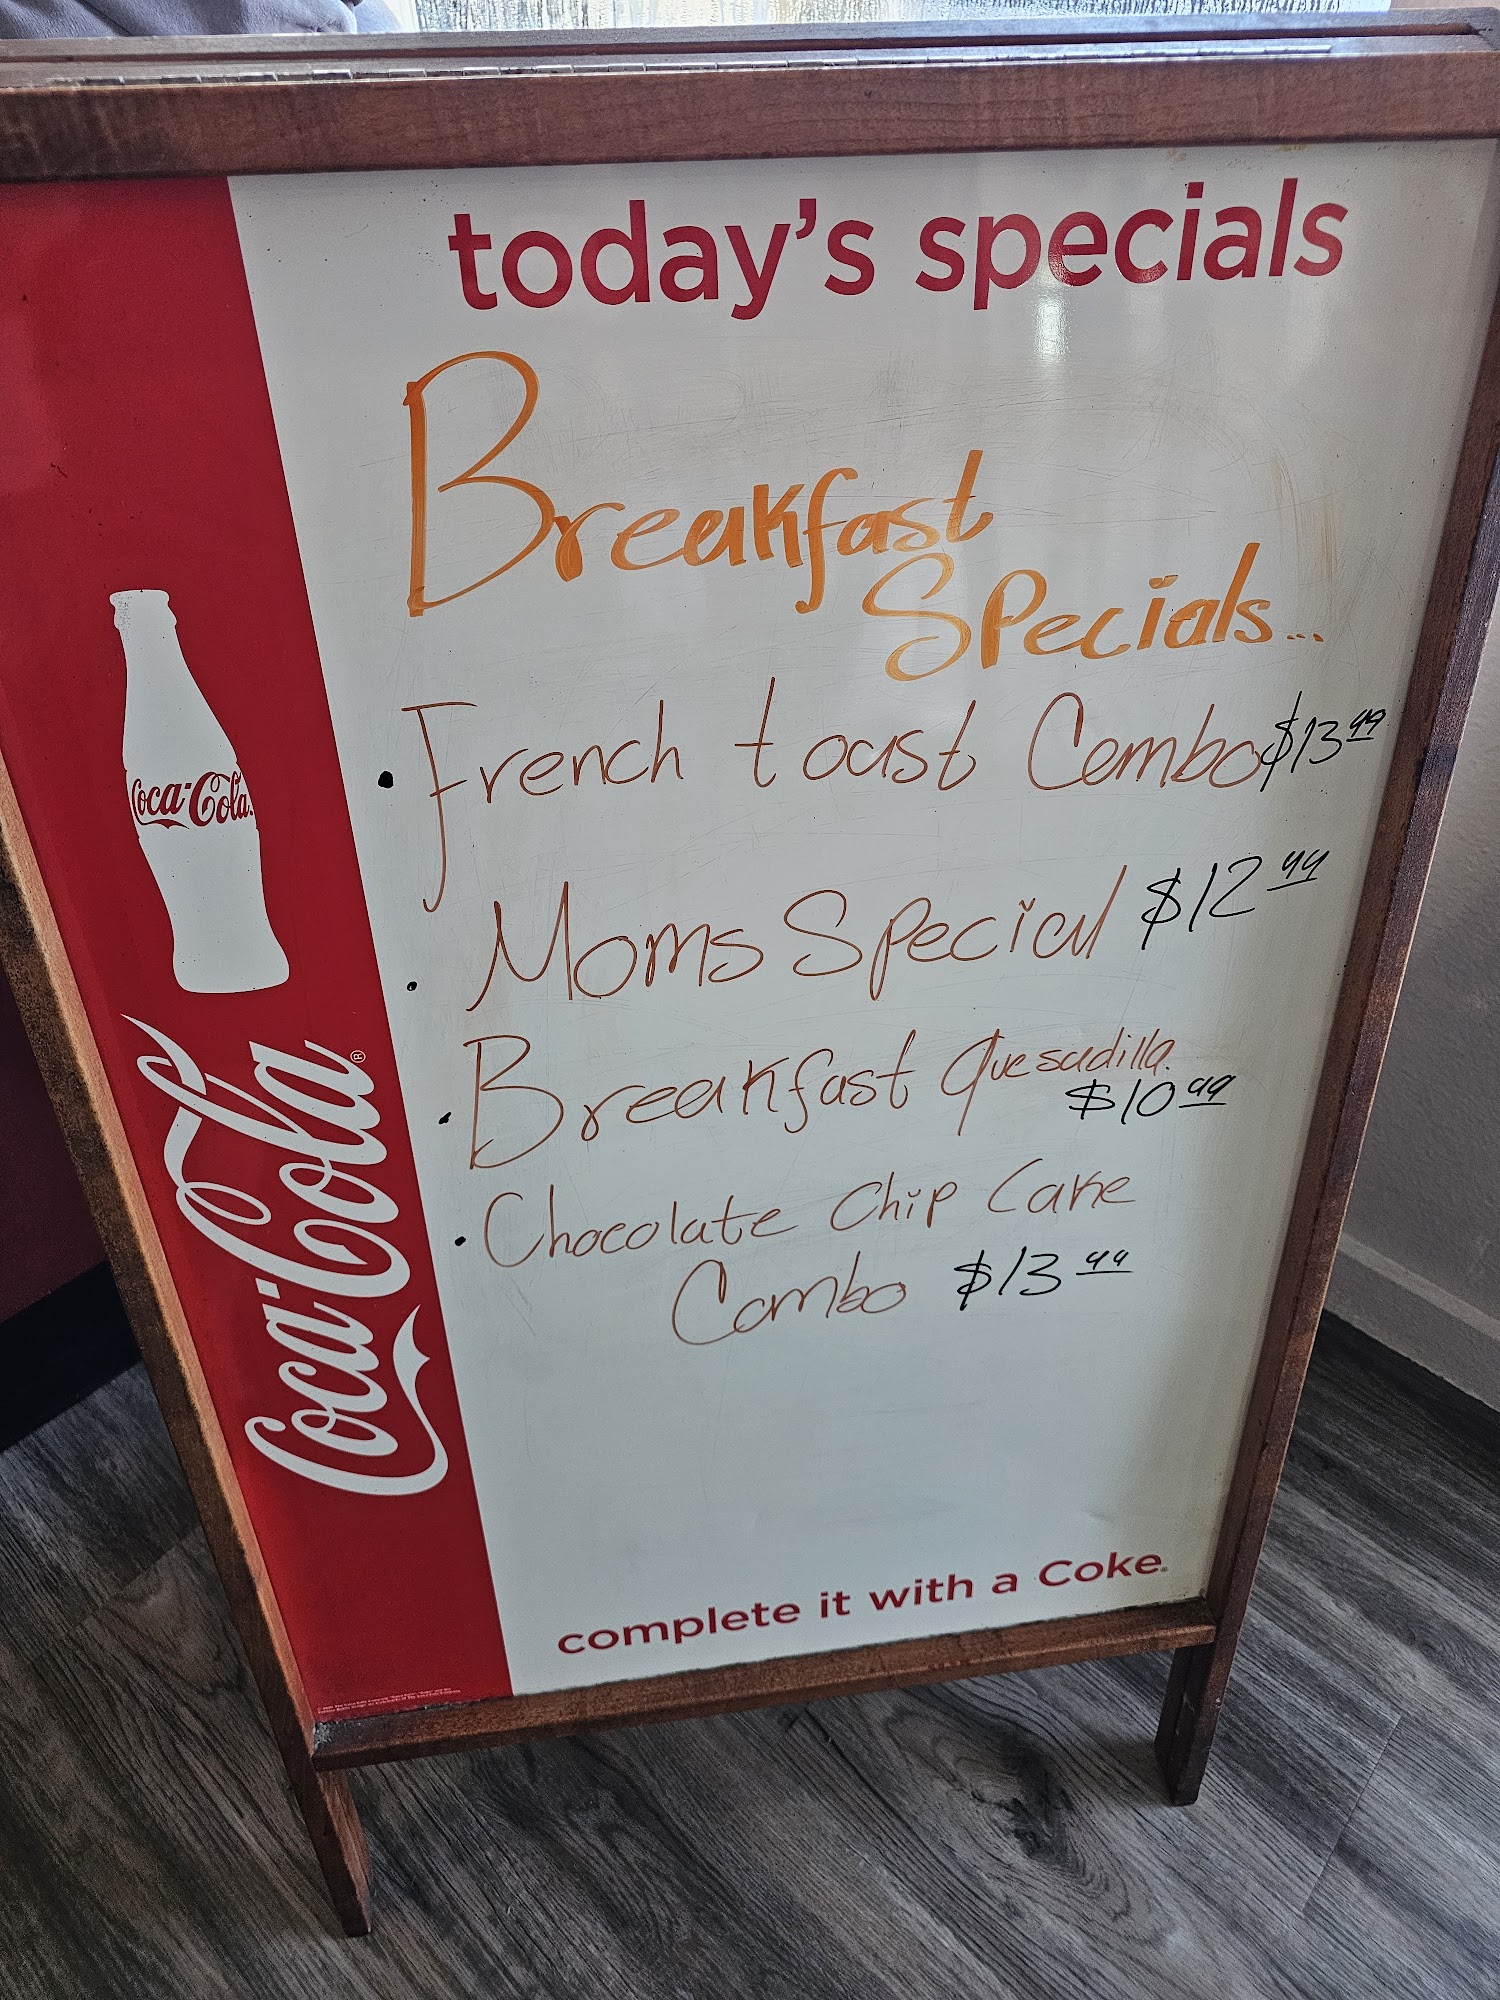 today's specials
Breakfast
Specials...
• French toast Combo $13.99
• Moms Special $12.99
• Breakfast Quesadilla.
$10.99
• Chocolate Chip Cake
Combo $13.99
Coca-Cola
Coca-Cola®
complete it with a Coke.